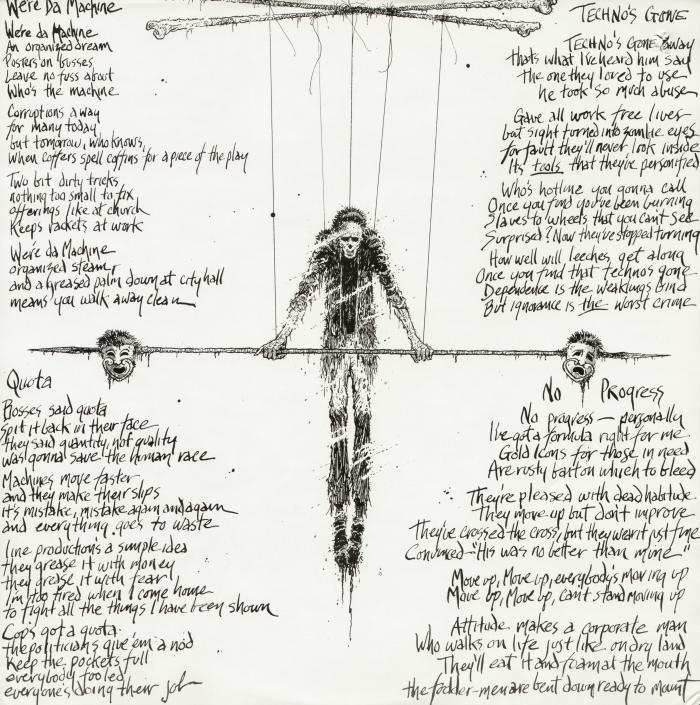 We're Da Machine
We're da Machine
An organized dream
Posters on busses
Leave no fuss about
Who's the machine
Corruptions away
for many today
but tomorrow, who knows,
when coffers spell coffins for a piece of the play
Two bit dirty tricks
nothing too small to fix
offerings like at church
Keeps rackets at work
We're da Machine
organized steamr
and a greased palm down at city hall
means you walk away clean
Quota
Bosses said quota
spit it back in their face
they said quantity, not quality
was gonna save the human race
Machines move faster
and they make their slips
it's mistake, mistake again and again
and everything goes to waste
line production's a simple idea
they grease it with money
they grease it with fear
I'm too tired when I come home
to fight all the things I have been shown
Cops got a quota
the politicians give em a nod
keep the pockets full
everybody fooled
everyone's doing their job
Techno's Gone
Techno's Gone away
thats what I've heard him say
the one they loved to use
he took so much abuse
Gave all work free lives
but sight turned into zombie eyes
for fault they'll never look inside
Its tools that they're personified
Who's hotline you gonna call
Once you find you've been burning
Slaves to wheels that you can't see
Surprised? Now they've stopped turning
How well will leeches get along
Once you find that technos gone
Dependence is the weaklings bind
But ignorance is the worst crime
No Progress
No progress — personally
I've got a formula right for me
Gold Icons for those in need
Are rusty bart on which to bleed
They're pleased with dead habitude
They move up but don't improve
They've crossed the cross, but they werit just fine
Convinced - "His was no better than mine -"
Move up, Move up, everybody's moving up
Move up, Move up, can't stand moving up
Attitude makes a corporate man
Who walks on life just like on dry land
They'll eat it and foam at the mouth
the fodder-men are bent down ready to mount